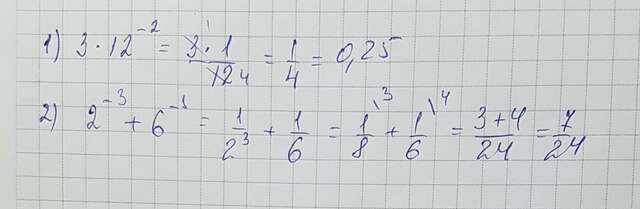 1) 3 · 12⁻² = 3 · 1 / 12 4 = 1/4 = 0,25
2) 2⁻³ + 6⁻¹ = 1/2³ + 1/6 = 1\³/8 + 1\⁴/6 = 3+4/24 = 7/24